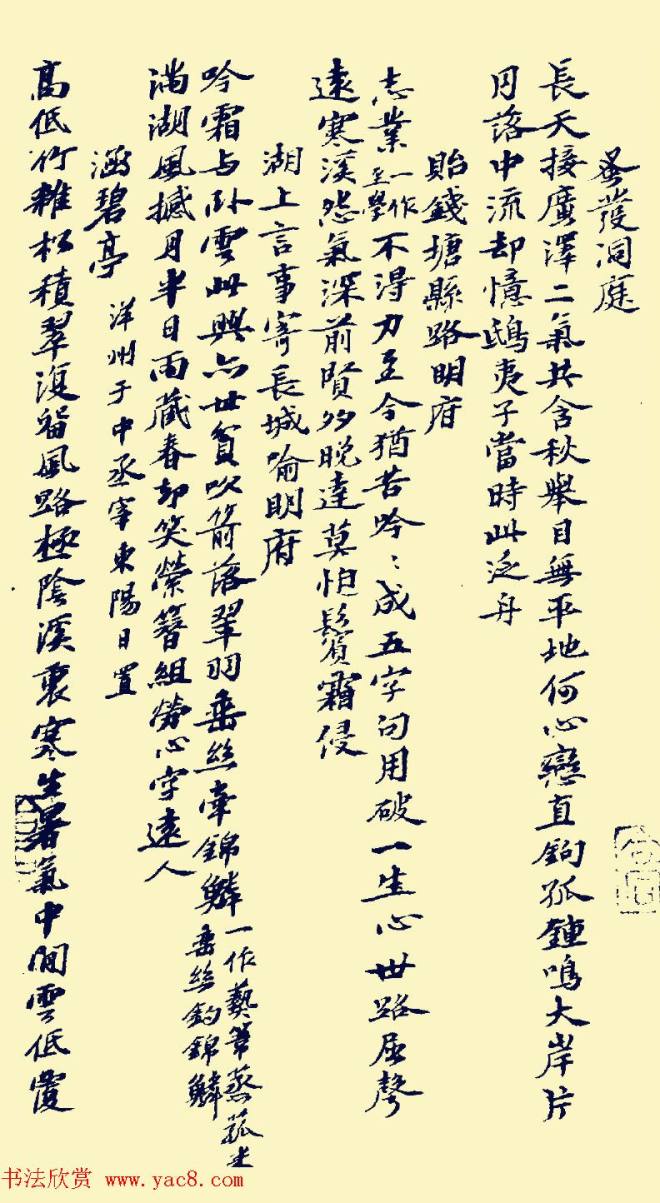 蚤發洞庭
長天接廣澤二氣共含秋舉目無平地何心戀直鉤孤鍾鳴大岸片
月落中流却憶鴟夷子當時此泛舟
貽錢塘縣路明府
志業一作至學不得力至今猶苦吟〻成五字句用破一生心世路屈聲
遠寒溪怨氣深前賢多晚達莫怕鬢霜侵
湖上言事寄長城喻明府
吟霜与卧雲此興亦甘貧吹箭落翠羽垂絲牽錦鱗一作藝葦蒸菰米垂絲釣錦鱗
滿湖風撼月半日雨藏春却笑縈簪組勞心字遠人
涵碧亭 洋州于中丞宰東陽日置
高低竹雜松積翠復留風路極陰溪裏寒生暑氣中閒雲低覆
书法欣赏 www.yac8.com